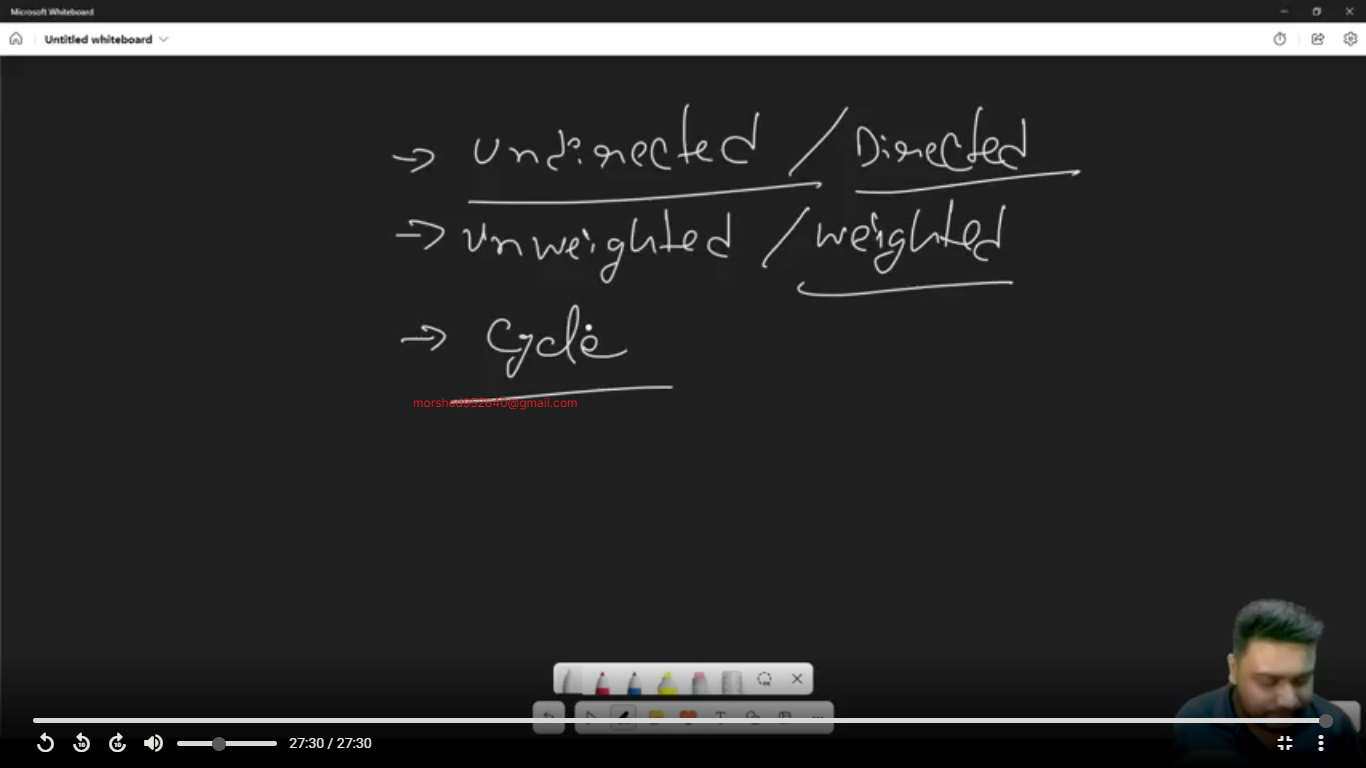 Microsoft Whiteboard
Untitled whiteboard
→ Undirected / Directed
→ Unweighted / weighted
→ Cycle
morshed952640@gmail.com
10 10 27:30 / 27:30